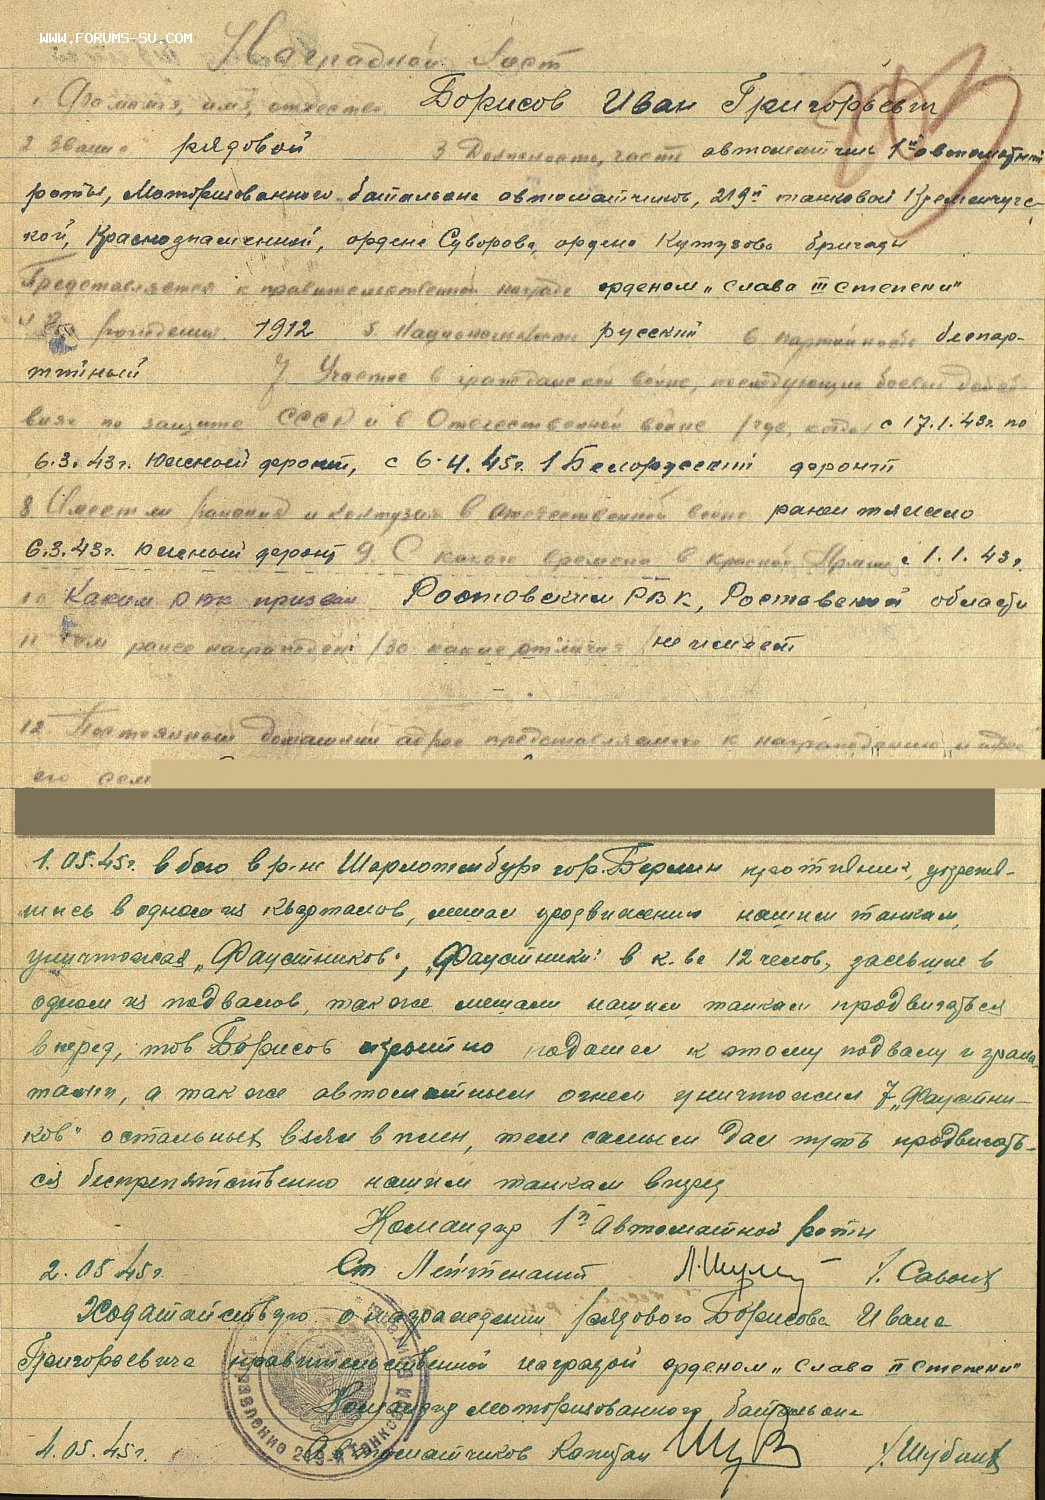 WWW.FORUMS-SU.COM
Наградной Лист
1 Фамилия, имя, отчество Борисов Иван Григорьевич
2 Звание рядовой 3 Должность, часть автоматчик 1й автоматной
роты, Моторизованного батальона автоматчиков, 219й танковой Кременчугс-
кой, Краснознаменной, ордена Суворова, ордена Кутузова бригады
Представляется к правительственной награде орденом „Слава III степени"
рождения 1912 5. Национальность русский 6 партийность беспар-
тийный 7 Участие в гражданской войне, последующих боевых дейст-
виях по защите СССР и в Отечественной войне /где, когда/ с 17.1.43г. по
6.3.43г. Южный фронт, с 6.4.45г. 1 Белорусский фронт
8 Имеет ли ранения и контузия в отечественной войне ранен тяжело
6.3.43г. Южный фронт 9. С какого времени в красной Армии с 1.1.43г.
10 Каким РВК призван Ростовским РВК, Ростовской области
11 Чем ранее награжден /за какие отличия/ не имеет
12. Постоянный домашний адрес представляемого к награждению и адрес
его сем
1.05.45г. в бою в р-не Шарлотенбург гор. Берлин противник, укрепив-
шись в одном из кварталов, мешал продвижению нашим танкам,
„Фаустников", „Фаустники" в к-ве 12 челов, засевшие в
одном из подвалов, также мешали нашим танкам продвигаться
вперед, тов Борисов скрытно подошел к этому подвалу и грана-
тами, а также автоматным огнем уничтожил 7 „Фаустни-
ков" остальных взял в плен, тем самым дал путь продвигать-
ся беспрепятственно нашим танкам вперед
Командир 1й Автоматной роты
2.05.45г. Ст Лейтенант
Ходатайствую о награждении рядового Борисова Ивана
Григорьевича правительственной наградой орденом „Слава II степени"
Командир моторизованного батальона
4.05.45г. Автоматчиков Капитан /Шубин/
управление 219-й танковой